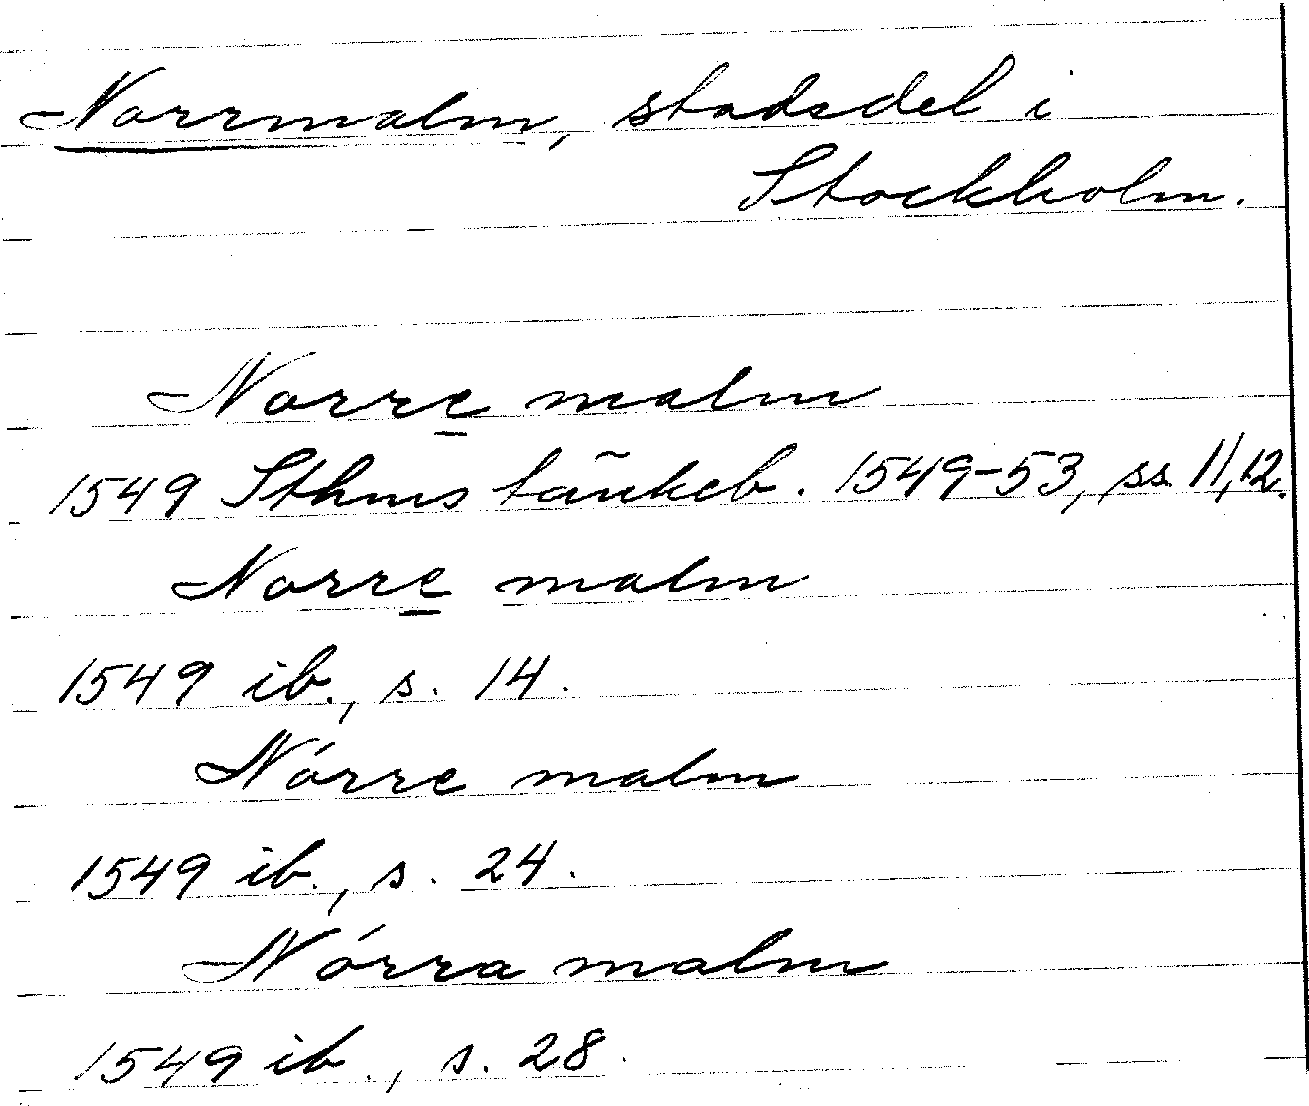 Norrmalm, stadsdel i
Stockholm.
Norre malm
1549 Sthms tänkeb. 1549-53, ss. 11, 12.
Norre malm
1549 ib., s. 14.
Nórre malm
1549 ib., s. 24.
Nórra malm
1549 ib., s. 28.